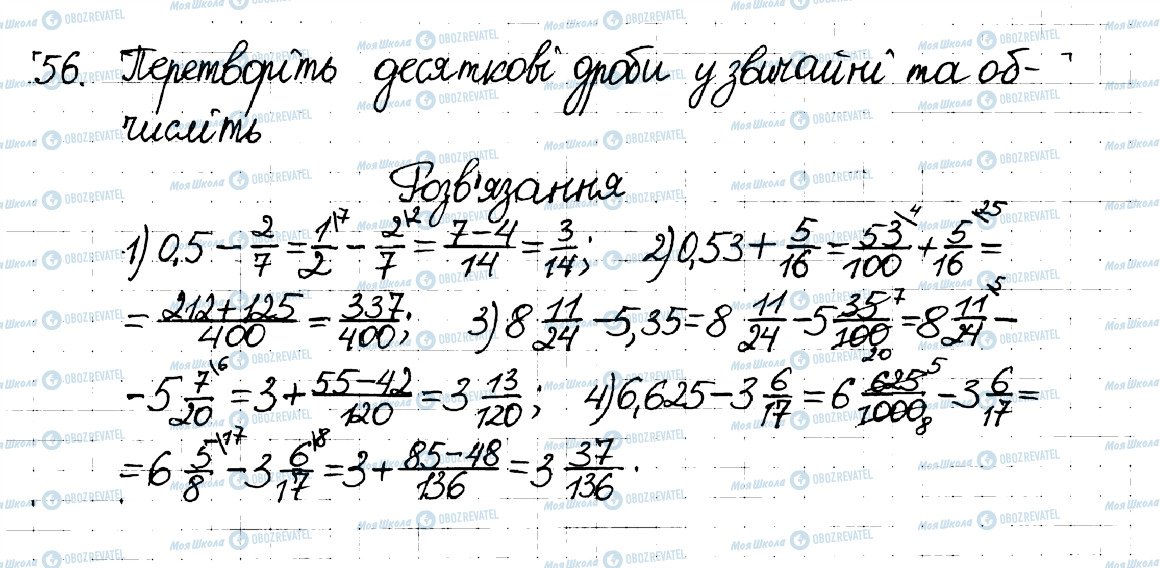 56. Перетворіть десяткові дроби у звичайні та об-
числіть
Розв'язання
1) 0,5 - 2/7 = 1/2 \7 - 2/7 \2 = (7-4)/14 = 3/14; 2) 0,53 + 5/16 = 53/100 \4 + 5/16 \25 =
= (212+125)/400 = 337/400; 3) 8 11/24 - 5,35 = 8 11/24 - 5 35/100 7 20 = 8 11/24 \5 -
- 5 7/20 \6 = 3 + (55-42)/120 = 3 13/120; 4) 6,625 - 3 6/17 = 6 625/1000 5 8 - 3 6/17 =
= 6 5/8 \17 - 3 6/17 \8 = 3 + (85-48)/136 = 3 37/136.